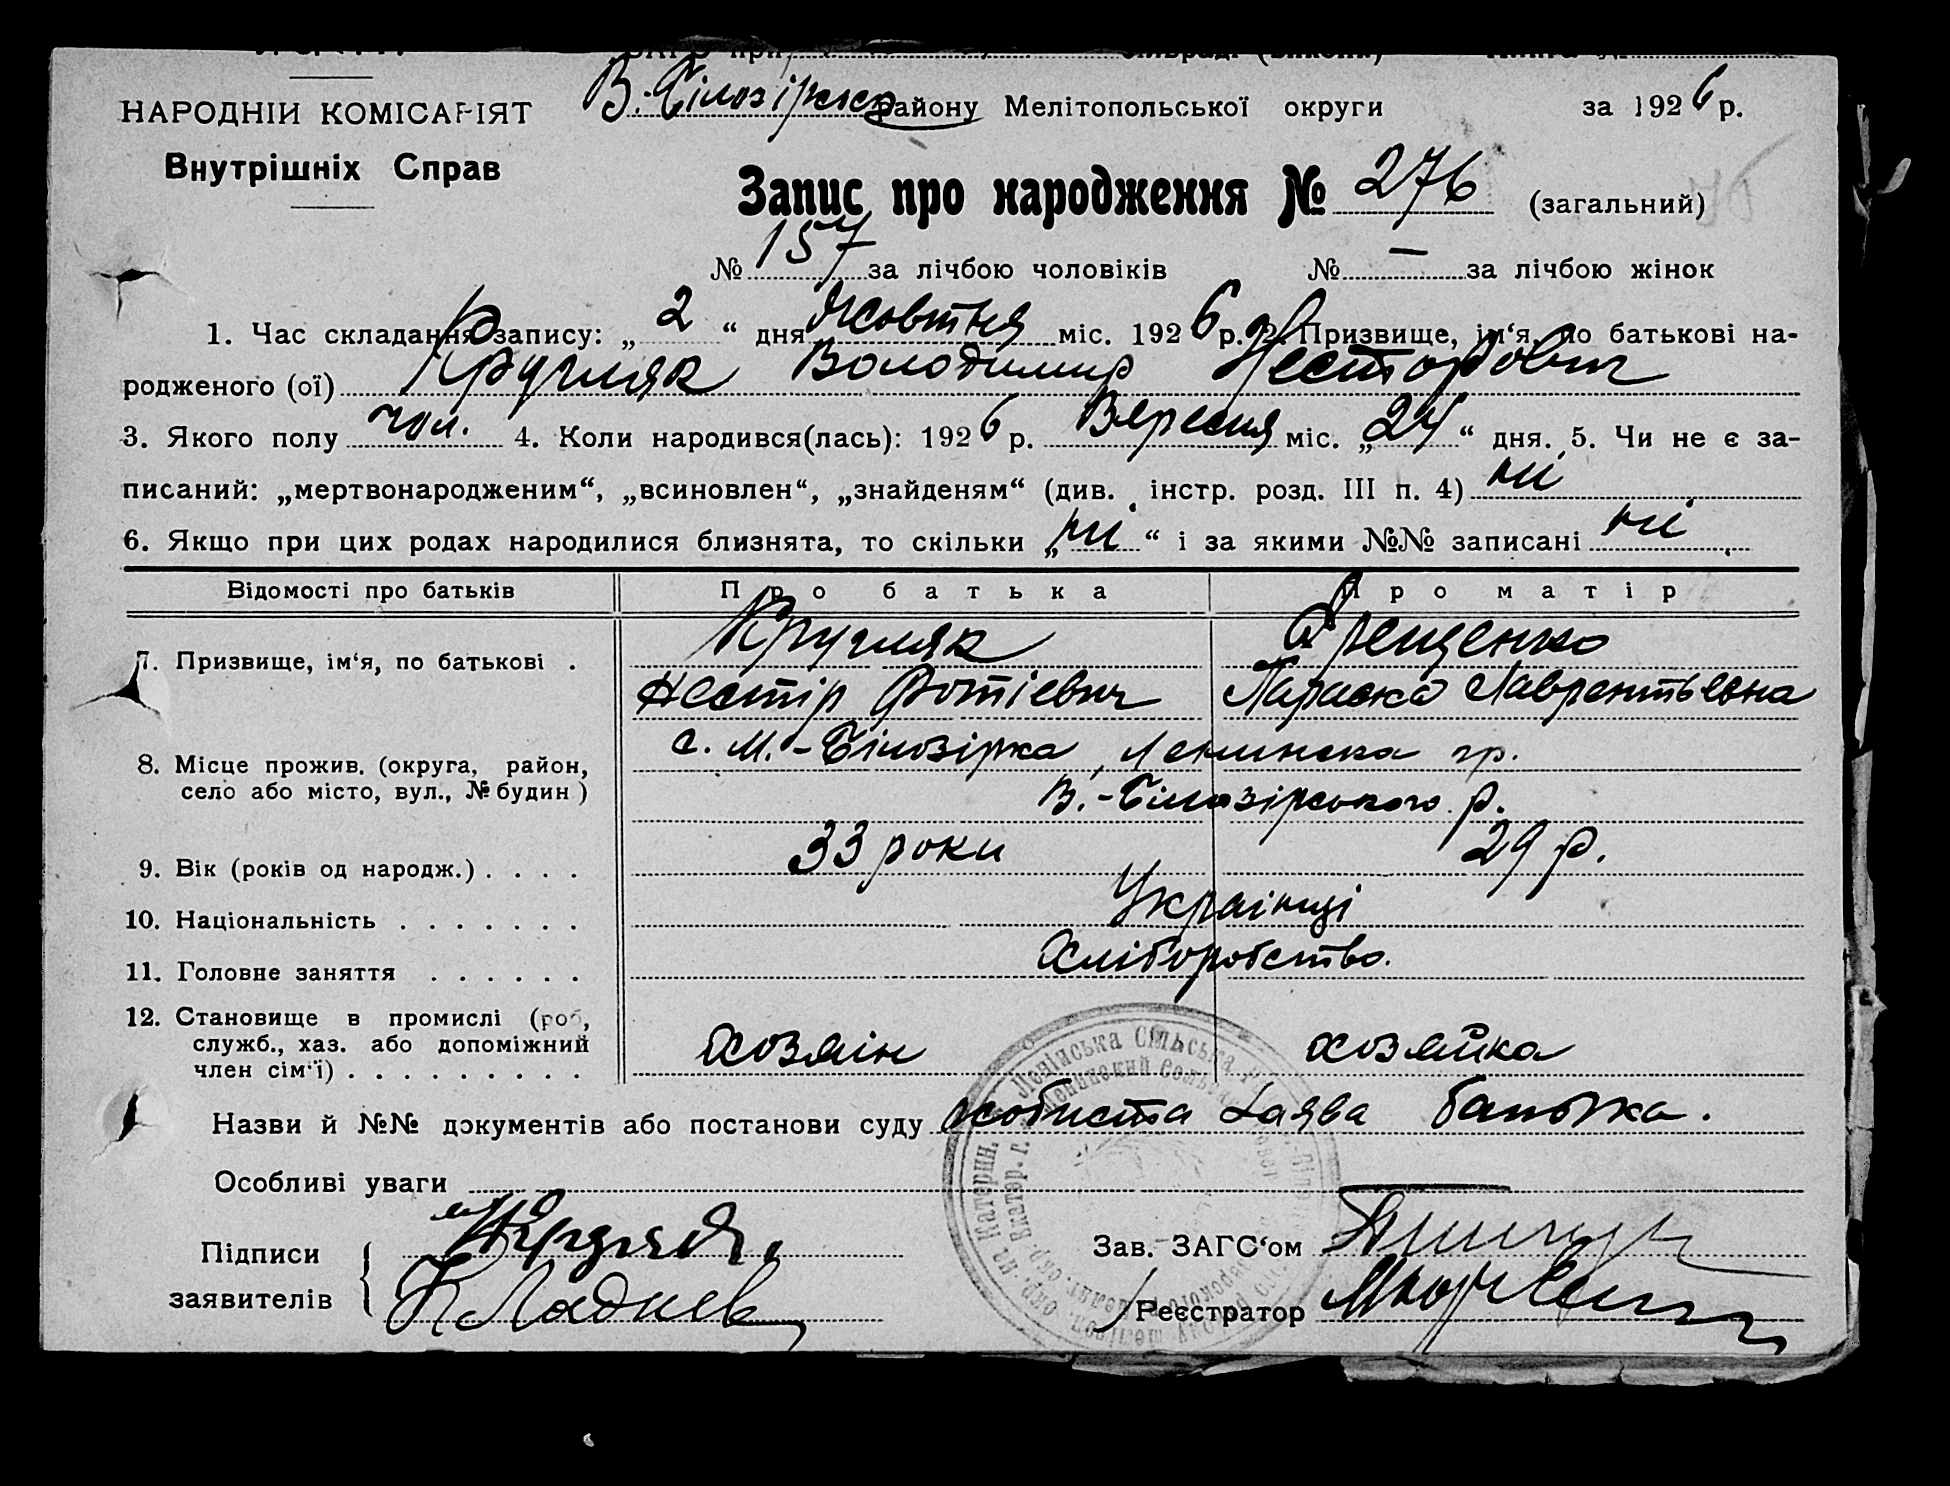 НАРОДНІЙ КОМІСАРІЯТ
Внутрішніх Справ
В.-Білозірськ району Мелітопольської округи за 1926 р.
Запис про народження № 276 (загальний)
№ 157 за лічбою чоловіків № — за лічбою жінок
1. Час складання запису: „2“ дня Жовтня міс. 1926 р. 2. Призвище, ім‘я, по батькові на-
родженого (ої) Кругляк Володимир Несторович
3. Якого полу чол. 4. Коли народився(лась): 1926 р. Вересня міс. „24“ дня. 5. Чи не є за-
писаний: „мертвонародженим“, „всиновлен“, „знайденям“ (див. інстр. розд. III п. 4) ні
6. Якщо при цих родах народилися близнята, то скільки „ні“ і за якими №№ записані ні
Відомості про батьків Про батька Про матір
Кругляк
7. Призвище, ім‘я, по батькові .
Нестір Фотієвич Параска Лаврентьєвна
с. М.-Білозірка, Ленинська гр.
8. Місце прожив. (округа, район,
село або місто, вул., № будин)
В.-Білозірського р.
9. Вік (років од народж.) . . . . 33 роки 29 р.
10. Національність . . . . . . . Українці
11. Головне заняття . . . . . . Хліборобство.
12. Становище в промислі (роб,
служб., хаз. або допоміжний
член сім‘ї) . . . . . . . . . хозяін хозяйка
Назви й №№ документів або постанови суду особиста заява батька.
Особливі уваги
Підписи
заявителів
Зав. ЗАГС‘ом
Реєстратор
Ленінська Сільська